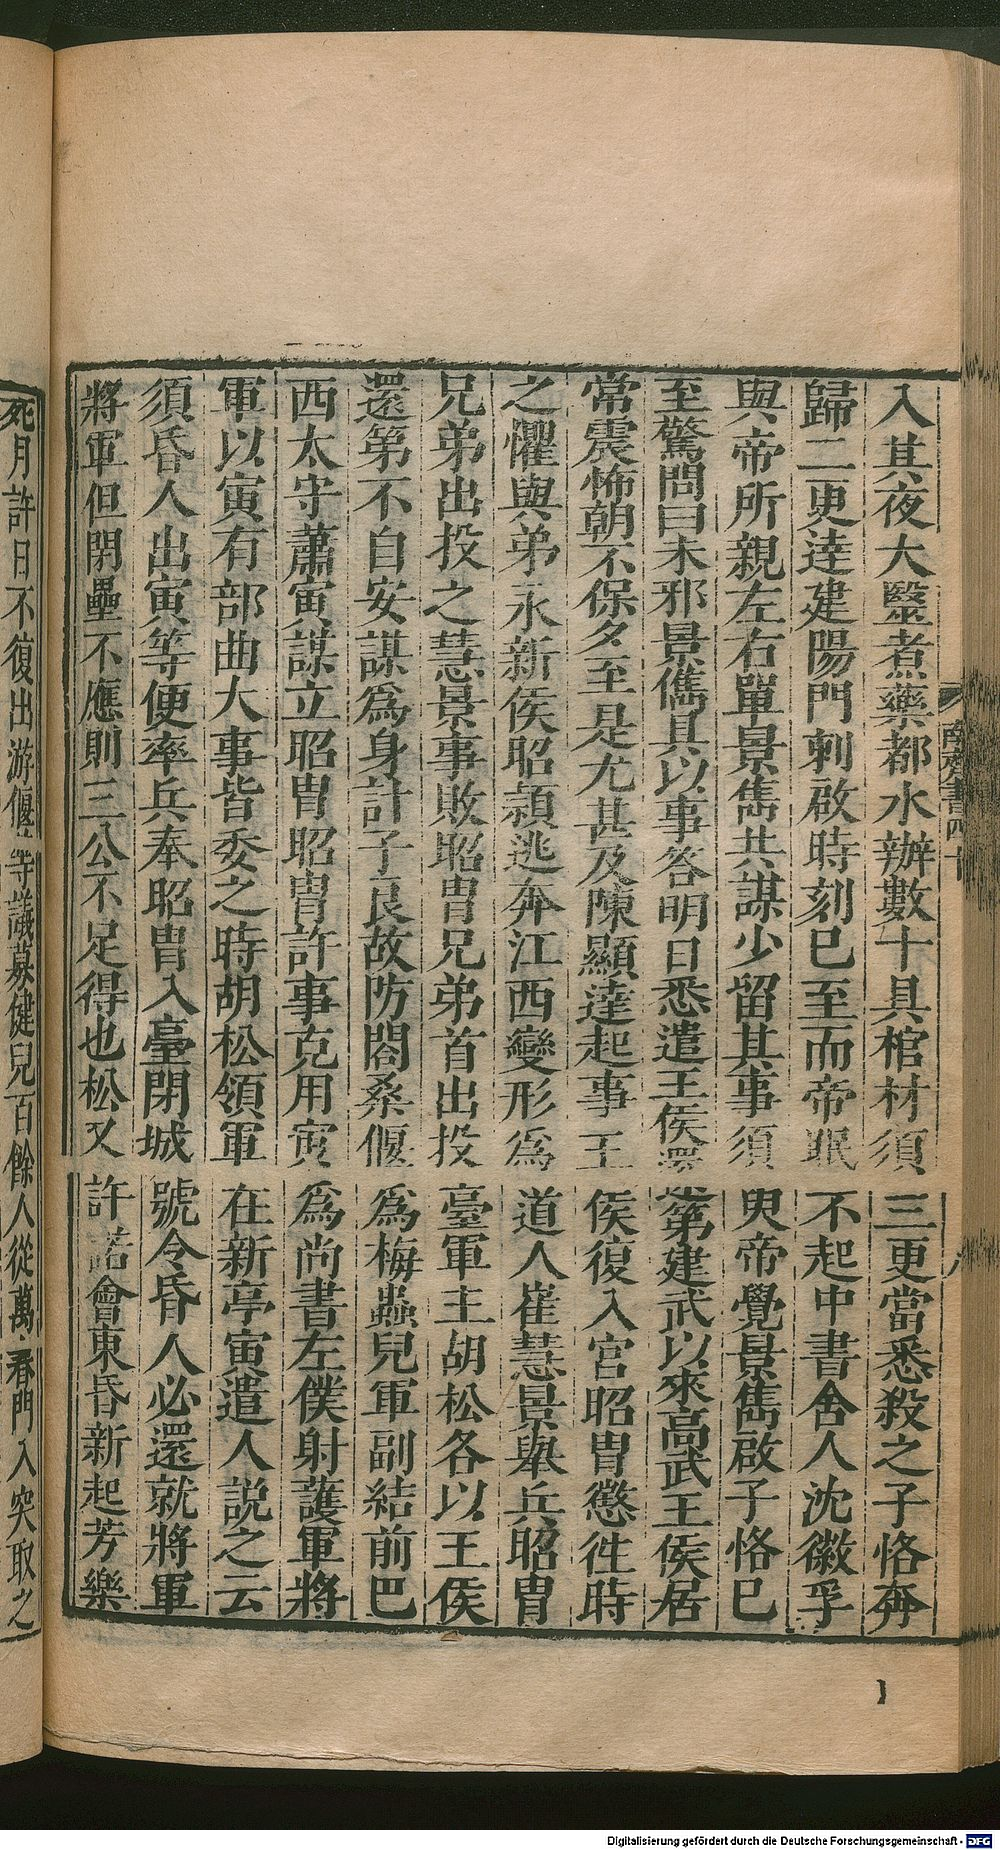 入其夜大醫煮藥都水辦數十具棺材須三更當悉殺之子恪奔
歸二更達建陽門刺啟時刻已至而帝眠不起中書舍人沈徽孚
與帝所親左右單景雋共謀少留其事須臾帝覺景雋啟子恪已
至驚問曰未邪景儁具以事答明日悉遣王侯還第建武以來高武王侯居
常震怖朝不保夕至是尤甚及陳顯達起事王侯復入宮昭胄懲往時
之懼與弟永新侯昭潁逃奔江西變形為道人崔慧景舉兵昭胄
兄弟出投之慧景事敗昭胄兄弟首出投臺軍主胡松各以王侯
還第不自安謀為身計子良故防閤桑偃為梅蟲兒軍副結前巴
西太守蕭寅謀立昭胄昭胄許事克用寅為尚書左僕射護軍將
軍以寅有部曲大事皆委之時胡松領軍在新亭寅遣人說之云
須昏人出寅等便率兵奉昭胄入臺閉城號令昏人必還就將軍
將軍但閉壘不應則三公不足得也松又許諾會東昏新起芳樂
南齊書四十
八
月許日不復出游偃等議募健兒百餘人從萬春門入突取之
Digitalisierung gefördert durch die Deutsche Forschungsgemeinschaft - DFG